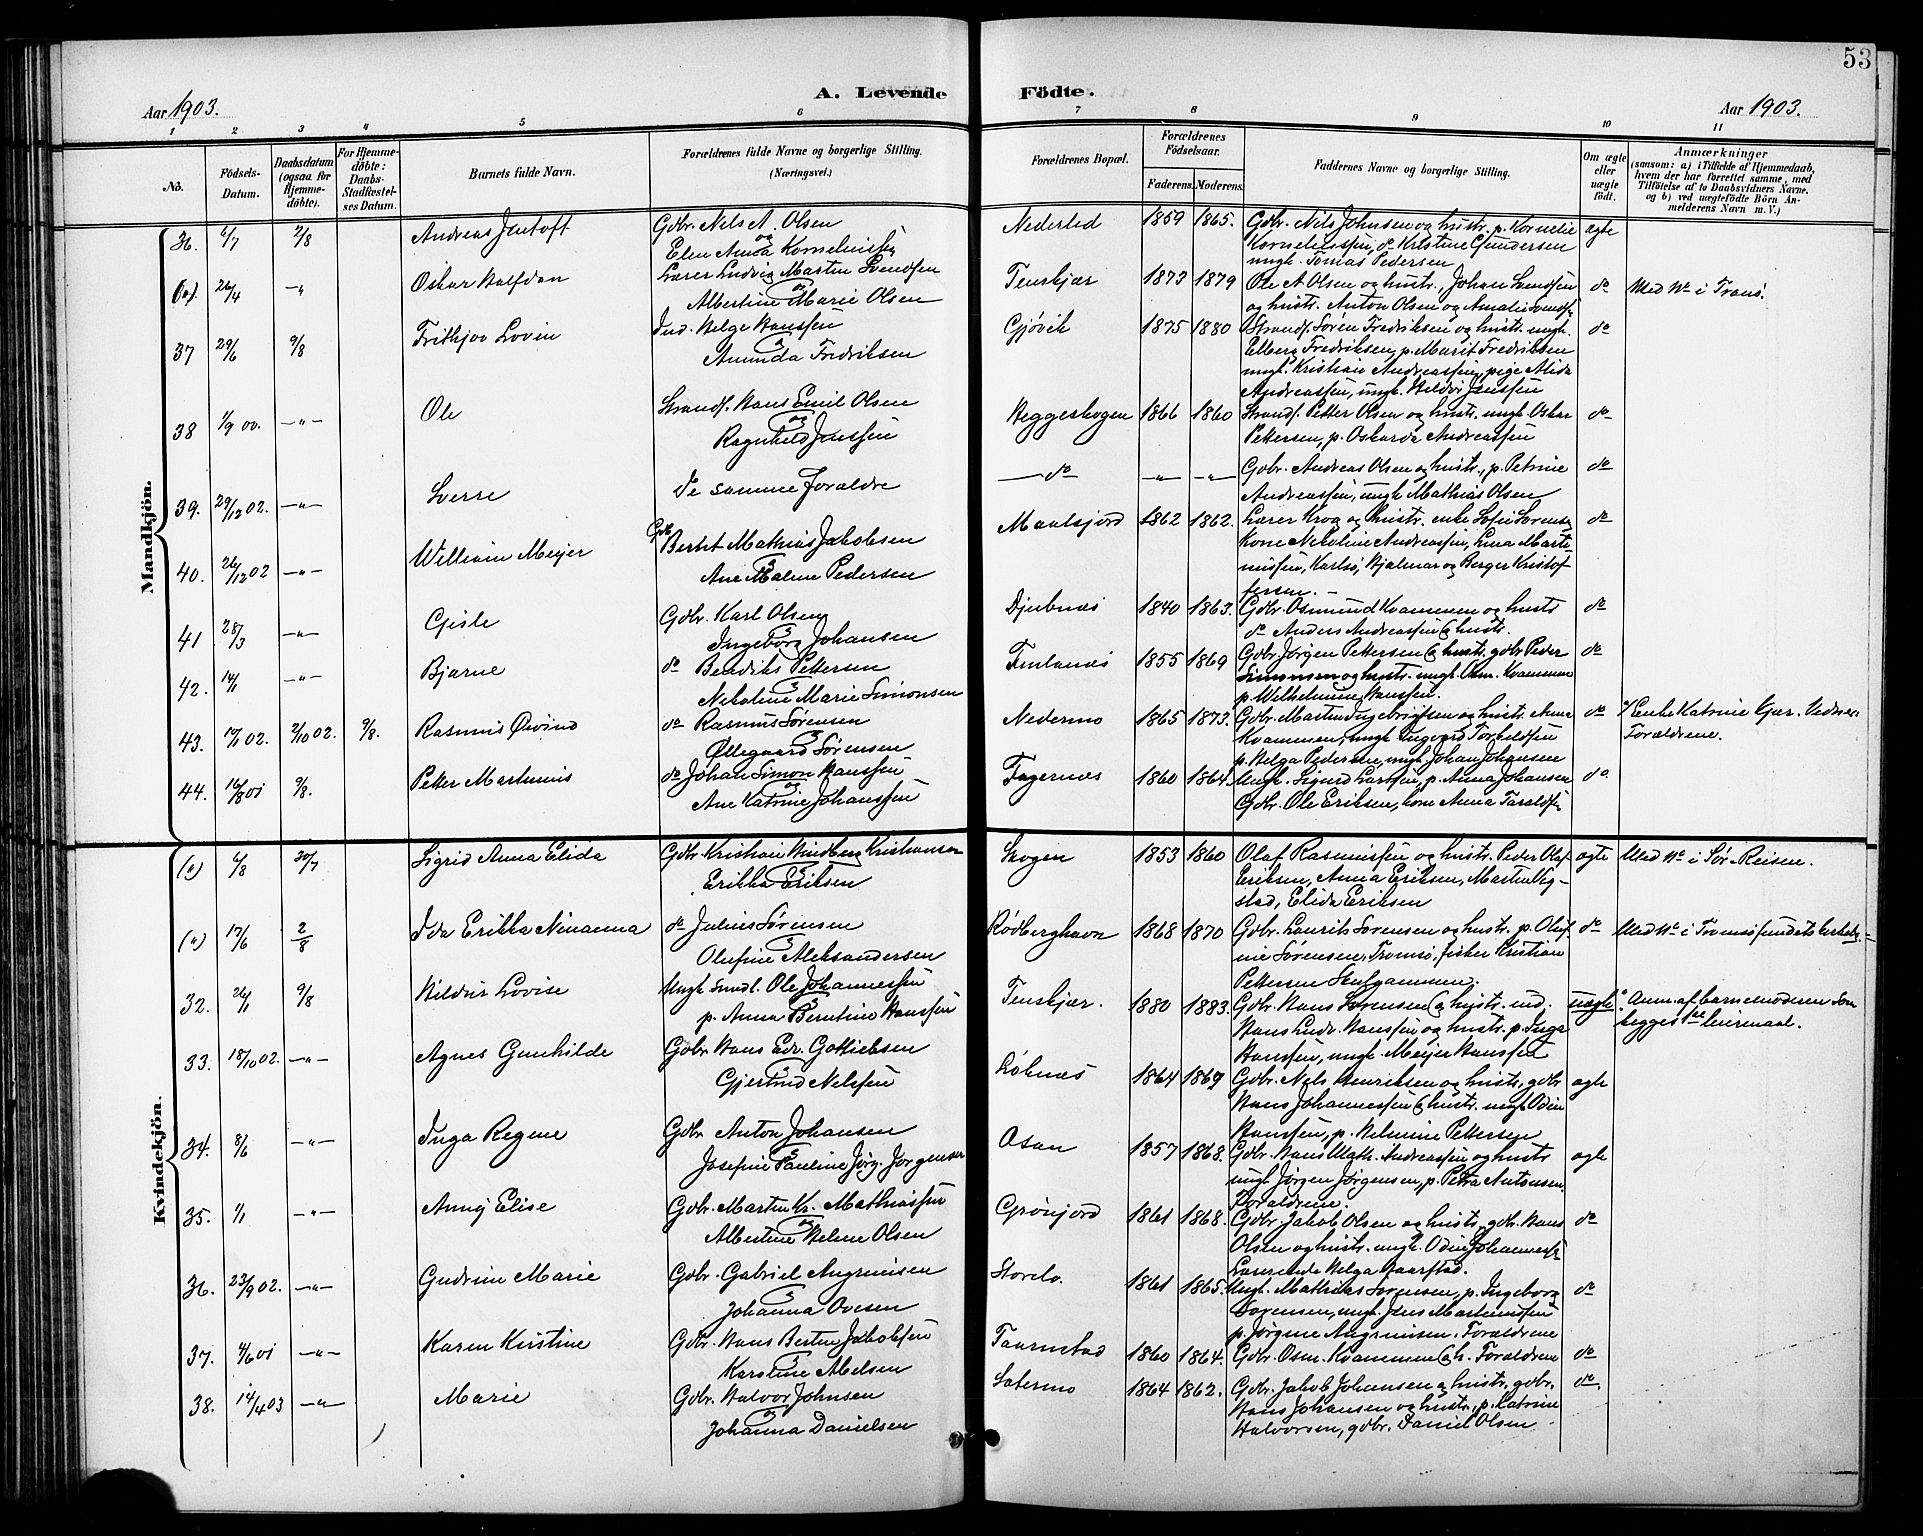 53
Aar 1903.
A. Levende Födte.
Aar 1903.
1 2 3 4 5 6 7 8 9 10 11
No.
Födsels-Datum.
Daabsdatum (ogsaa for Hjemme-döbte).
For Hjemme-döbte: Daabs-Stadfæstel-ses Datum.
Barnets fulde Navn.
Forældrenes fulde Navne og borgerlige Stilling. (Næringsvei.)
Forældrenes Bopæl.
Forældrenes Födselsaar.
Faderens. Moderens.
Faddernes Navne og borgerlige Stilling.
Om ægte eller uægte födt.
Anmærkninger (saasom: a) i Tilfælde af Hjemmedaab, hvem der har forrettet samme, med Tilföielse af to Daabsvidners Navne, og b) ved uægtefödte Börn Anmelderens Navn m. V.)
Mandkjön.
36. 2/8 Andreas Jentoft Gdbr. Nels A. Olsen
og
Elen Anna Korneliussen
Nederled 1859 1865. Gdbr. Nils Johnsen og hustr. p. Kornelie ægte
Korneliussen, do Kristine Gundersen
ungk. Tomas Pedersen
26/4 -"- Oskar Halfdan Lærer Ludvig Martin Svendsen
og
Albertine Marie Olsen
Tenskjær 1873 1879 Ole A Olsen og hustr., Johan Svendsen do Med No i Trans.
og hustr. Anton Olsen og Amalie Svends.
37 29/6 9/8 Frithjov Lovin Ind. Helge Hanssen
og
Aminda Fridriksen
Gjøvik 1875 1880 Strands. Søren Fredriksen og hustr. ungk. do
Elberg Fredriksen, p. Marit Fredriksen
ungk. Kristian Andreassen, pige Alida
Andreassen, ungk. Jenssen
38 1/9 00. -"- Ole Strands. Hans Emil Olsen
og
Ragnhild Jenssen
Heggeskogen 1866 1860 Strands. Petter Olsen og hustr. ungk. Oskar do
Pettersen, p. Oskarda Andreassen
39. 29/12 02. -"- Sverre De samme Forældre
-do -"- -"- Gdbr. Andreas Olsen og hustr., p. Petrine do
Andreassen, ungk Mathias Olsen
40. 26/12 02 -"- William Meyer Gdbr Bertet Mathias Jakobsen
og
Ane Malene Pedersen
Maalsjord 1862 1862. Lærer Krog og hustr. enke Sofie Sørensen do
Kone Nikoline Andreassen, Lina Marti-
nussen, Karls. Hjalmar og Berger Kristof-
fersen. -
41 28/3 -"- Gisle Gdbr. Karl Olsen
og
Ingeborg Johansen
Djubnæs 1840 1863. Gdbr. Osmund Kvammen og hustr do
do Anders Andreassen og hustr.
42. 14/1 -"- Bjarne do Bendiks Pettersen
og
Nikoline Marie Simonsen
Finlanæs 1855 1869 Gdbr. Jørgen Pettersen og hustr. gdbr Peder do
Simonsen og hustr. ungk. Osm. Kvammen
p. Wilhelmine Hanssen.
43. 17/1 02. 2/10 02. 9/8. Rasmus Øivind do Rasmus Sørensen
og
Øllegaard Sørensen
Nedermo 1865 1873. Gdbr. Martin Ingebrigtsen og hustr. Anne do
Kvammen, ungk Ingvard Torkildsen
p. Helga Pedersen, ungk Johan Johansen
Enke Katrine Gjær. Vidner
Forældrene.
44. 16/8 01 9/8. Petter Martinius do Johan Simon Hanssen
og
Ane Katrine Johanssen
Fagernæs 1860 1864. Ungk. Sigurd Larssen, p. Anna Johansen do
Gdbr. Ole Eriksen, kone Anna Taraldsen
Kvindekjön.
(a) 6/8 30/7 Sigrid Anna Elida Gdbr Kristian Windberg Kristiansen
Erikka Eriksen
Skogen 1853 1860 Olaf Rasmussen og hustr. Peder Olaf ægte Med No i Sør-Reisen.
Eriksen, Anna Eriksen, Martin Vig-
stad, Elida Eriksen
(a) 17/6 2/8 Ida Erikka Ninanna do Julius Sørensen
og
Olufine Aleksandersen
Rødberghavn 1868 1870 Gdbr. Laurits Sørensen og hustr. p. Oluf- do Med No i Tromsøsundets kirkebg.-
ine Sørensen, Tromsø, fisker Kristian
Pettersen Skulgammen.
32. 26/1 9/8 Hildur Lovise Ungk smdl. Ole Johannessen
og
p. Anna Berntine Hanssen
Tenskjær. 1880 1883. Gdbr. Hans Sørensen og hustr. ind. uægte Anm. af barnemoderen Son
Hans Ludv. Hanssen og hustr. p. Inga begges 1ste leiermaal.
Hanssen, ungk. Meyer Hanssen
33. 18/10 02. -"- Agnes Gunhilde Gdbr. Hans Edv. Gottliebsen
og
Gjertrud Nilssen
Løknæs 1864 1869 Gdbr. Nels Henriksen og hustr. gdbr ægte
Hans Johannessen og hustr. ungk. Odin
Hanssen, p. Helmine Pettersen
34. 8/6 -"- Inga Regine Gdbr Anton Johansen
og
Josefine Pauline Jørg. Jørgensen
Osan 1857 1868. Gdbr. Hans Math. Andreassen og hustr ægte
ungk Jørgen Jørgensen, p. Petra Antonsen.
Forældrene.
35. 1/1 -"- Anny Elise Gdbr. Martin Kr. Mathiassen
og
Albertine Helene Olsen
Grønjord 1861 1868. Gdbr. Jakob Olsen og hustr. gdbr. Hans do
Olsen og hustr. ungk. Odin Johanness.
Lærerinde Helga Haarstad.
36. 23/9 02. -"- Gudrun Marie Gdbr. Gabriel Angrimsen
og
Johanna Ovesen
Storelv. 1861 1865. Ungk. Mathias Sørensen, p. Ingeborg do
Sørensen, ungk. Jens Martinussen
p. Jørgine Angrimsen. Forældrene
37. 4/6 01 -"- Karen Kirstine Gdbr. Hans Bertin Jakobsen
og
Karoline Abelsen
Taarnstad 1860 1864. Gdbr. Osm. Kvammen og h. Forældrene do
38. 14/4 03 -"- Marie Gdbr. Halvor Johnsen
og
Johanna Danielsen
Satermo 1864 1862. Gdbr. Jakob Johansen og hustr., gdbr. do.
Hans Johansen og hustr., p. Katrine
Halvorsen, gdbr. Daniel Olsen